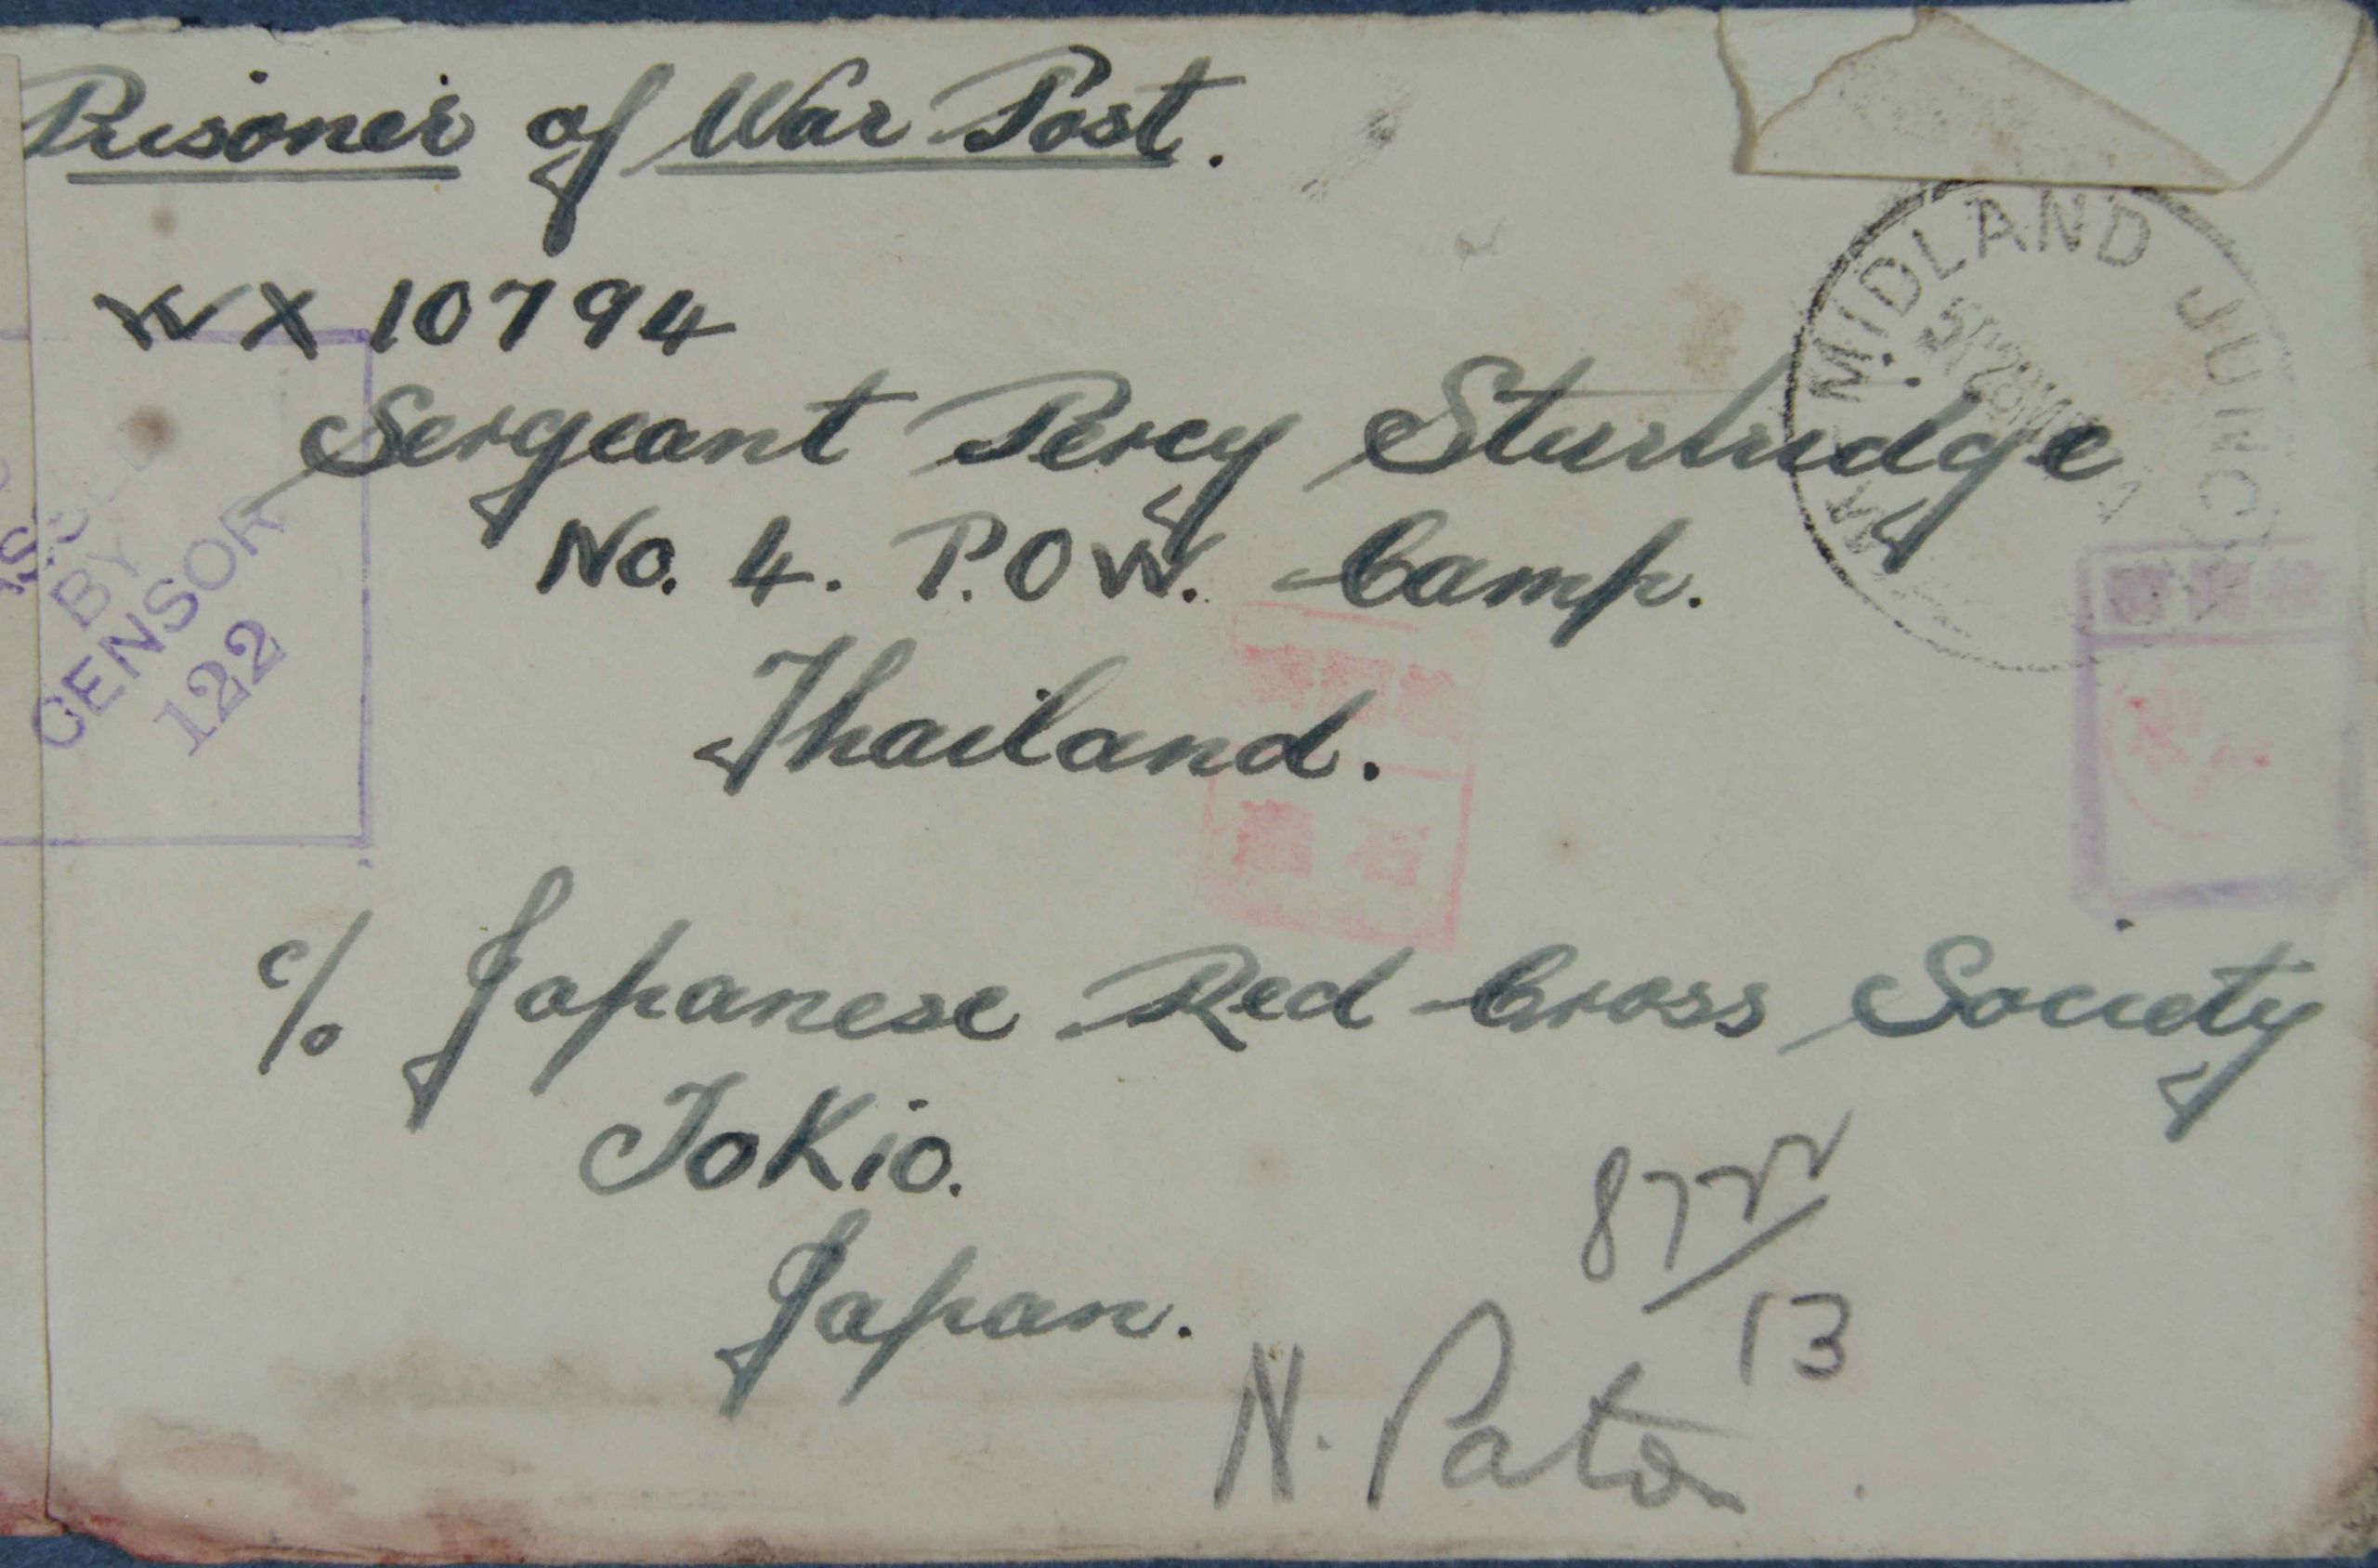 Prisoner of War Post.
WX 10794
Sergeant Percy Sturtridge
No. 4. P.O.W. Camp.
Thailand.
c/o Japanese Red Cross Society
ToKio.
Japan.
BY
CENSOR
122
MIDLAND JUNC
87
13
N. Paton